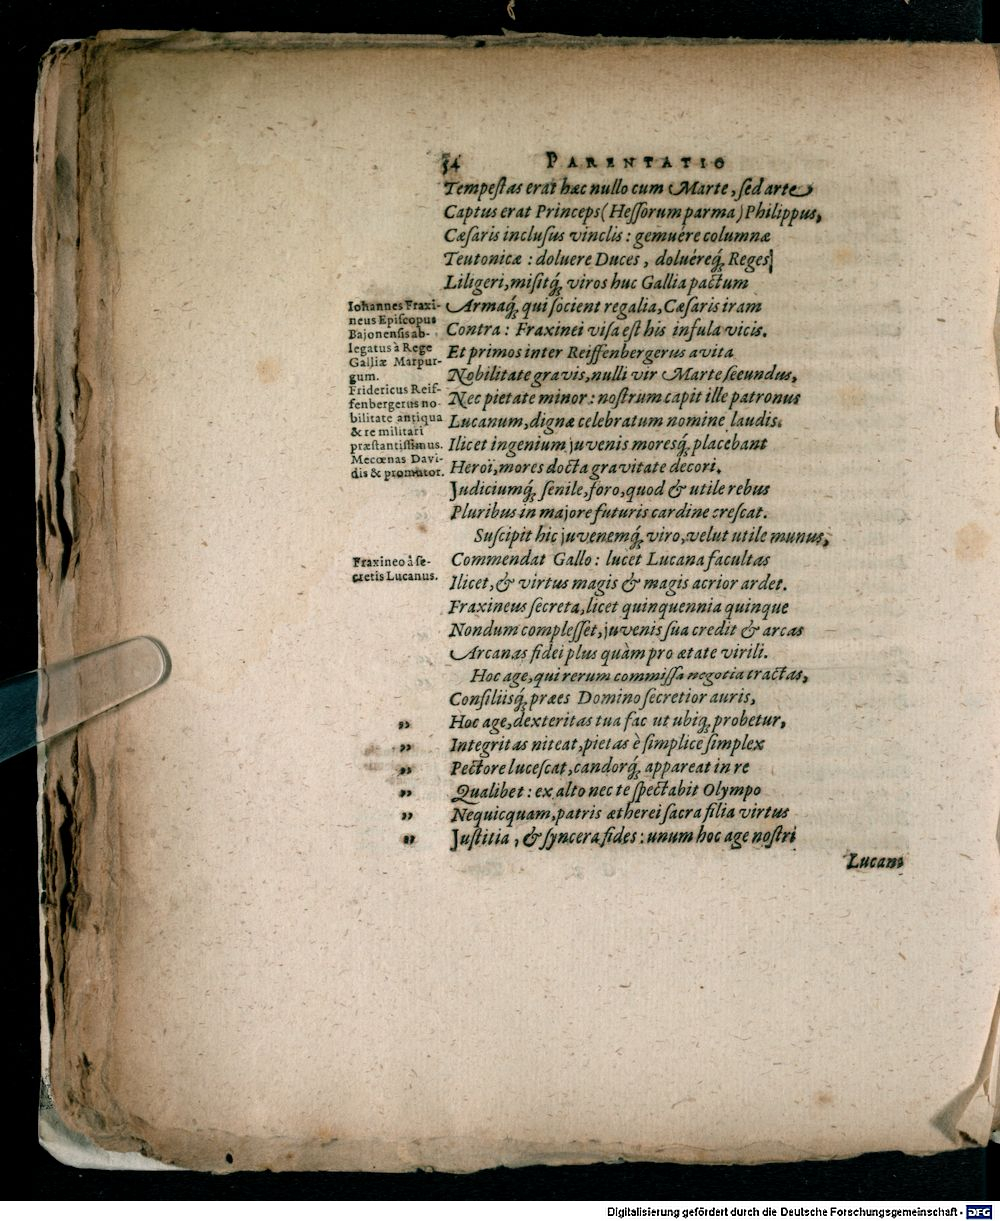 54 PARENTATIO
Tempeſtas erat hæc nullo cum Marte, ſed arte
Captus erat Princeps (Heſſorum parma) Philippus,
Cæſaris incluſus vinclis: gemuére columnæ
Teutonicæ: doluere Duces, doluéreq́; Reges
Liligeri, miſitq́; viros huc Gallia pactum
Armaq́; qui ſocient regalia, Cæſaris iram
Contra: Fraxinei viſa eſt his infula vicis.
Et primos inter Reiffenbergerus avita
Nobilitate gravis, nulli vir Marte ſecundus,
Nec pietate minor: noſtrum capit ille patronus
Lucanum, dignæ celebratum nomine laudis.
Ilicet ingenium juvenis moresq́; placebant
Heroï, mores docta gravitate decori.
Judiciumq́; ſenile, foro, quod & utile rebus
Pluribus in majore futuris cardine creſcat.
Suſcipit hic juvenemq́; viro, velut utile munus,
Commendat Gallo: lucet Lucana facultas
Ilicet, & virtus magis & magis acrior ardet.
Fraxineus ſecreta, licet quinquennia quinque
Nondum compleſſet, juvenis ſua credit & arcas
Arcanas fidei plus quàm pro ætate virili.
Hoc age, qui rerum commiſſa negotia tractas,
Conſiliisq́; præes Domino ſecretior auris,
„ Hoc age, dexteritas tua fac ut ubiq́; probetur,
„ Integritas niteat, pietas è ſimplice ſimplex
„ Pectore luceſcat, candorq́; appareat in re
„ Qualibet: ex alto nec te ſpectabit Olympo
„ Nequicquam, patris ætherei ſacra filia virtus
„ Juſtitia, & ſyncera fides: unum hoc age noſtri
Lucani
Iohannes Fraxi-
neus Epiſcopus
Bajonenſis ab-
legatus à Rege
Galliæ Marpur-
gum.
Fridericus Reif-
fenbergerus no-
bilitate antiqua
& re militari
præſtantiſſimus.
Mecœnas Davi-
dis & promotor.
Fraxineo à ſe-
cretis Lucanus.
Digitalisierung gefördert durch die Deutsche Forschungsgemeinschaft - DFG